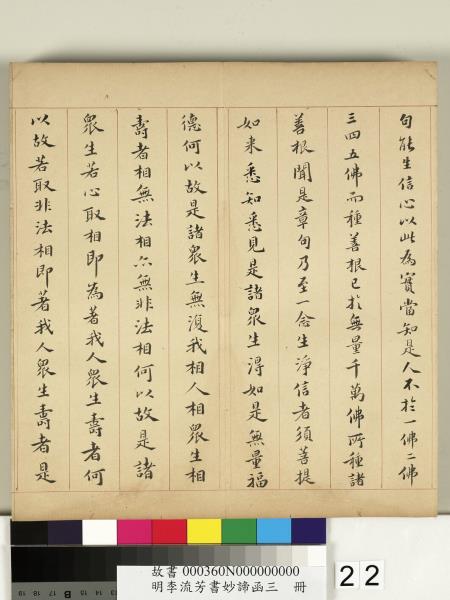 句能生信心以此為實當知是人不於一佛二佛
三四五佛而種善根已於無量千萬佛所種諸
善根聞是章句乃至一念生淨信者須菩提
如来悉知悉見是諸眾生得如是無量福
德何以故是諸眾生無復我相人相眾生相
壽者相無法相亦無非法相何以故是諸
眾生若心取相即為著我人眾生壽者何
以故若取非法相即著我人眾生壽者是
故書 000360N000000000
明李流芳書妙諦函三 冊
22